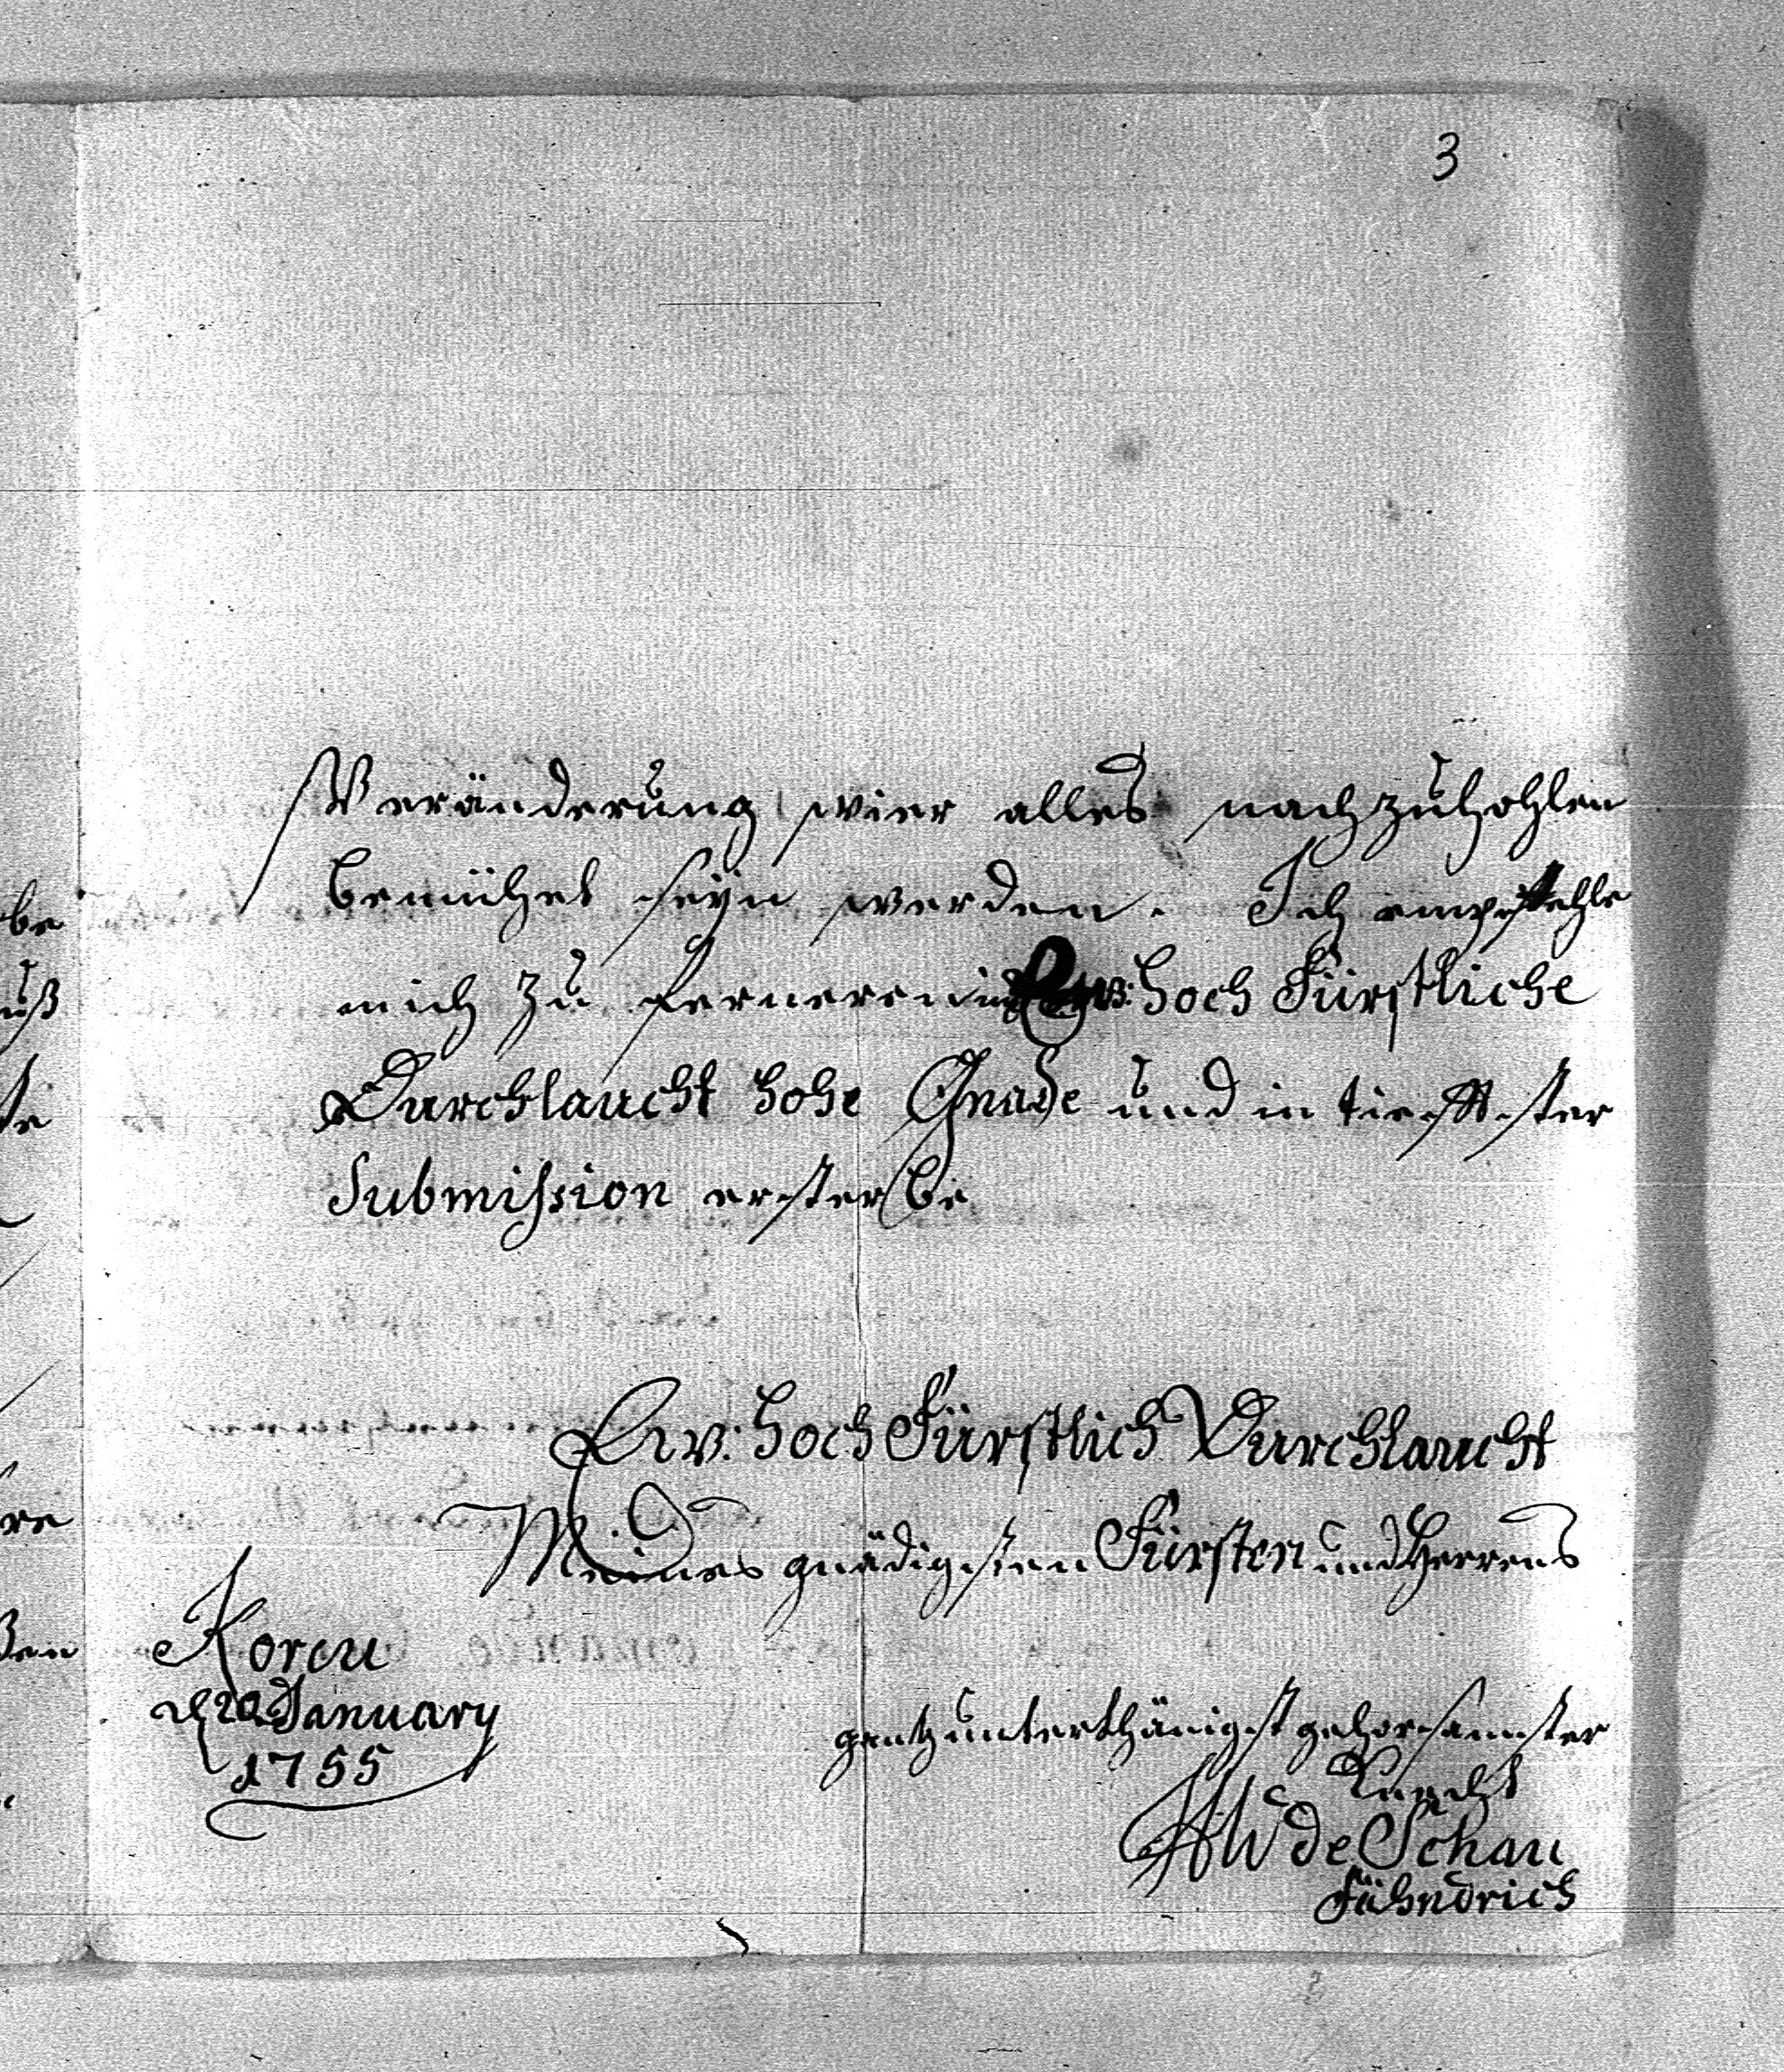 3
Veränderung wier alles nachzuhohlen
bemühet seÿn werden. Ich empfehle
mich zu ferneren in Ew: Hoch Fürstliche
Durchlaucht hohe Gnade und in tieffster
Submission ersterbe
Ew: Hoch Fürstlich Durchlaucht
Meines gnädigsten Fürsten und Herrens
Koren
d 20 January
1755
gantz unterthänigst gehorsamster
Knecht
HW de Schau
Fähndrich
be
uß
te
re
ßen